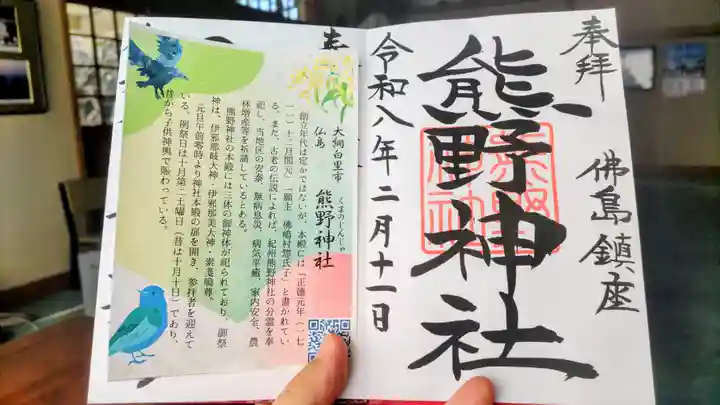 奉拝
佛島鎮座
熊野神社
令和八年二月十一日
大網白里市
仏島
くまのじんじゃ
熊野神社
創立年代は定かではないが、本殿には『正徳元年(一七
一一)十二月開元』「願主 佛嶋村惣氏子」と書かれてい
る。また、古老の伝説によれば、紀州熊野神社の分霊を奉
祀し、当地区の安泰、無病息災、病気平癒、家内安全、農
林増産等を祈請しているとある。
熊野神社の本殿には三体の御神体が祀られており、御祭
神は、伊邪那岐大神・伊邪那美大神・素戔嗚尊。
元旦午前零時より神社本殿の扉を開き、参拝者を迎えて
いる。例祭日は十月第二土曜日(昔は十月十日)であり、
昔から子供神輿で賑わっている。